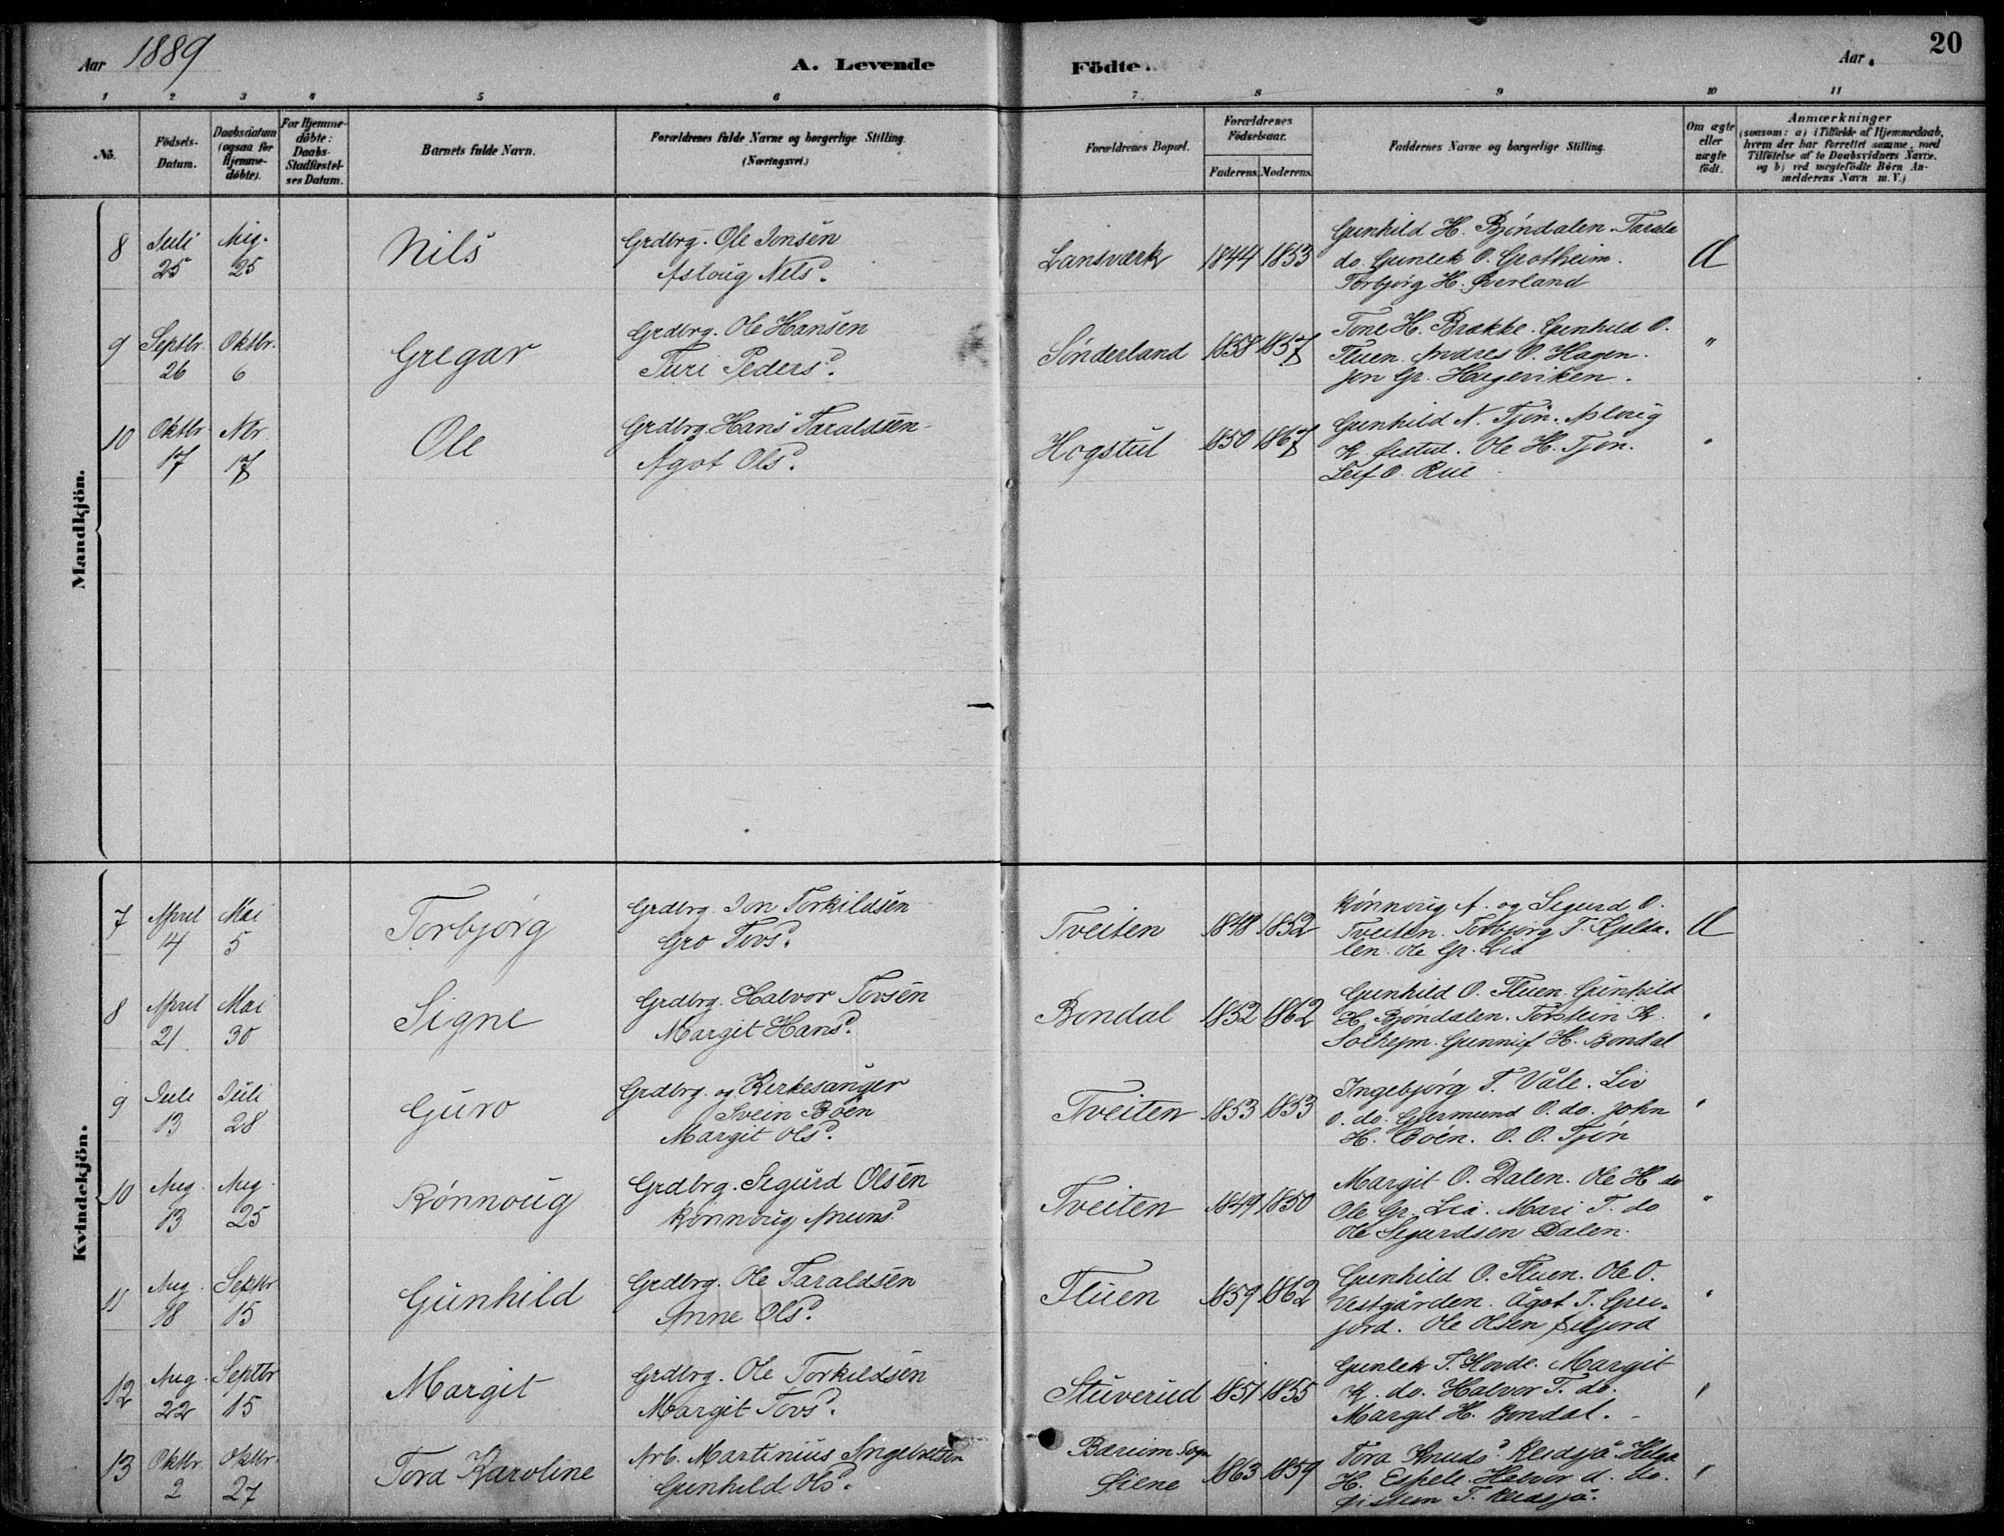 Aar 1889 A. Levende Födte. Aar 20
1 2 3 4 5 6 7 8 9 10 11
No. Födsels-Datum. Daabsdatum (ogsaa for Hjemmedöbte). For Hjemmedöbte: Daabs-Stadfæstelses Datum. Barnets fulde Navn. Forældrenes fulde Navne og borgerlige Stilling. (Næringsvei.) Forældrenes Bopæl. Forældrenes Födselsaar. Faderens. Moderens. Faddernes Navne og borgerlige Stilling. Om ægte eller uægte födt. Anmærkninger (saasom: a) i Tilfælde af Hjemmedaab, hvem der har forrettet samme, med Tilföielse af to Daabsvidners Navne, og b) ved uægtefödte Börn Anmelderens Navn m. V.)
Mandkjön.
8 Juli 25 Aug. 25 Nils Grdbrg. Ole Jonsen
Asloug Nelsd. Lansværk 1844 1853 Gunhild H. Bjöndalen.
do. Gunlek O. Grotheim.
Torbjørg H. Øverland
9 Septbr. 26 Oktbr. 6 Gregar Grdbrg. Ole Hansen
Turi Pedersd. Sønderland 1858 1857 Tone H. Brække. Gunhild O.
Fluen. Andres O. Hagen.
Jon Gr. Hageviken. "
10 Oktbr 17 Nbr. 17 Ole Grdbrg. Hans Taraldsen
Ågot Olsd. Hogstul 1850 1867 Gunhild N. Tjøn. Asloug
K. Ole H. Tjøn.
Leif O. Rue "
Kvindekjön.
7 April 14 Mai 5 Torbjørg Grdbrg. Jon Torkildsen
Gro Tovsd. Tveiten 1848 1852 Rønnoug A. og Sigurd O.
Tveiten. Torbjørg T. Kjelda-
len. Ole Gr. Lid
8 April 21. Mai 30 Signe Grdbrg. Halvor Tovsen
Margit Hansd. Bondal 1852 1862 Gunhild O. Fluen. Gunhild
H. Bjöndalen. Torstein K.
Solhejm. Gunnuf H. Bondal "
9 Juli 13 Juli 28 Guro Grdbrg. og Kirkesanger
Svein Bøen
Margit Olsd. Tveiten 1853 1853 Ingebjörg T. Våle. Liv
O. do. Gjermund O. do. John
H. Bøen. O. O. Tjøn "
10 Aug. 13 Aug. 25 Rønnoug Grdbrg. Sigurd Olsen
Rønnoug Amunsd. Tveiten 1849 1850 Margit O. Dalen. Ole H do
Ole Gr. Lia. Mari T. do
Ole Segurdsen Dalen. "
11 Aug. 18 Septbr 15 Gunhild Grdbrg. Ole Taraldsen
Anne Olsd. Fluen 1859 1862 Gunhild O. Fluen. Ole O.
Vestgården. Ågot T. Grei-
jord. Ole Olsen Siljord "
12 Aug. 22 Septbr 15 Margit Grdbrg. Ole Torkildsen
Margit Tovsd. Stuverud 1851 1855 Gunlek T. Hovde. Margit
K. do. Halvor T. do.
Margit H. Bondal. "
13 Oktbr. 2 Oktbr. 27 Tora Karoline Arb. Martinius Ingebretsen
Gunhild Olsd. Bærum Sogn
1863 1859 Tora Knudsd.
H. Espeli. Halvor d. do.
T. "